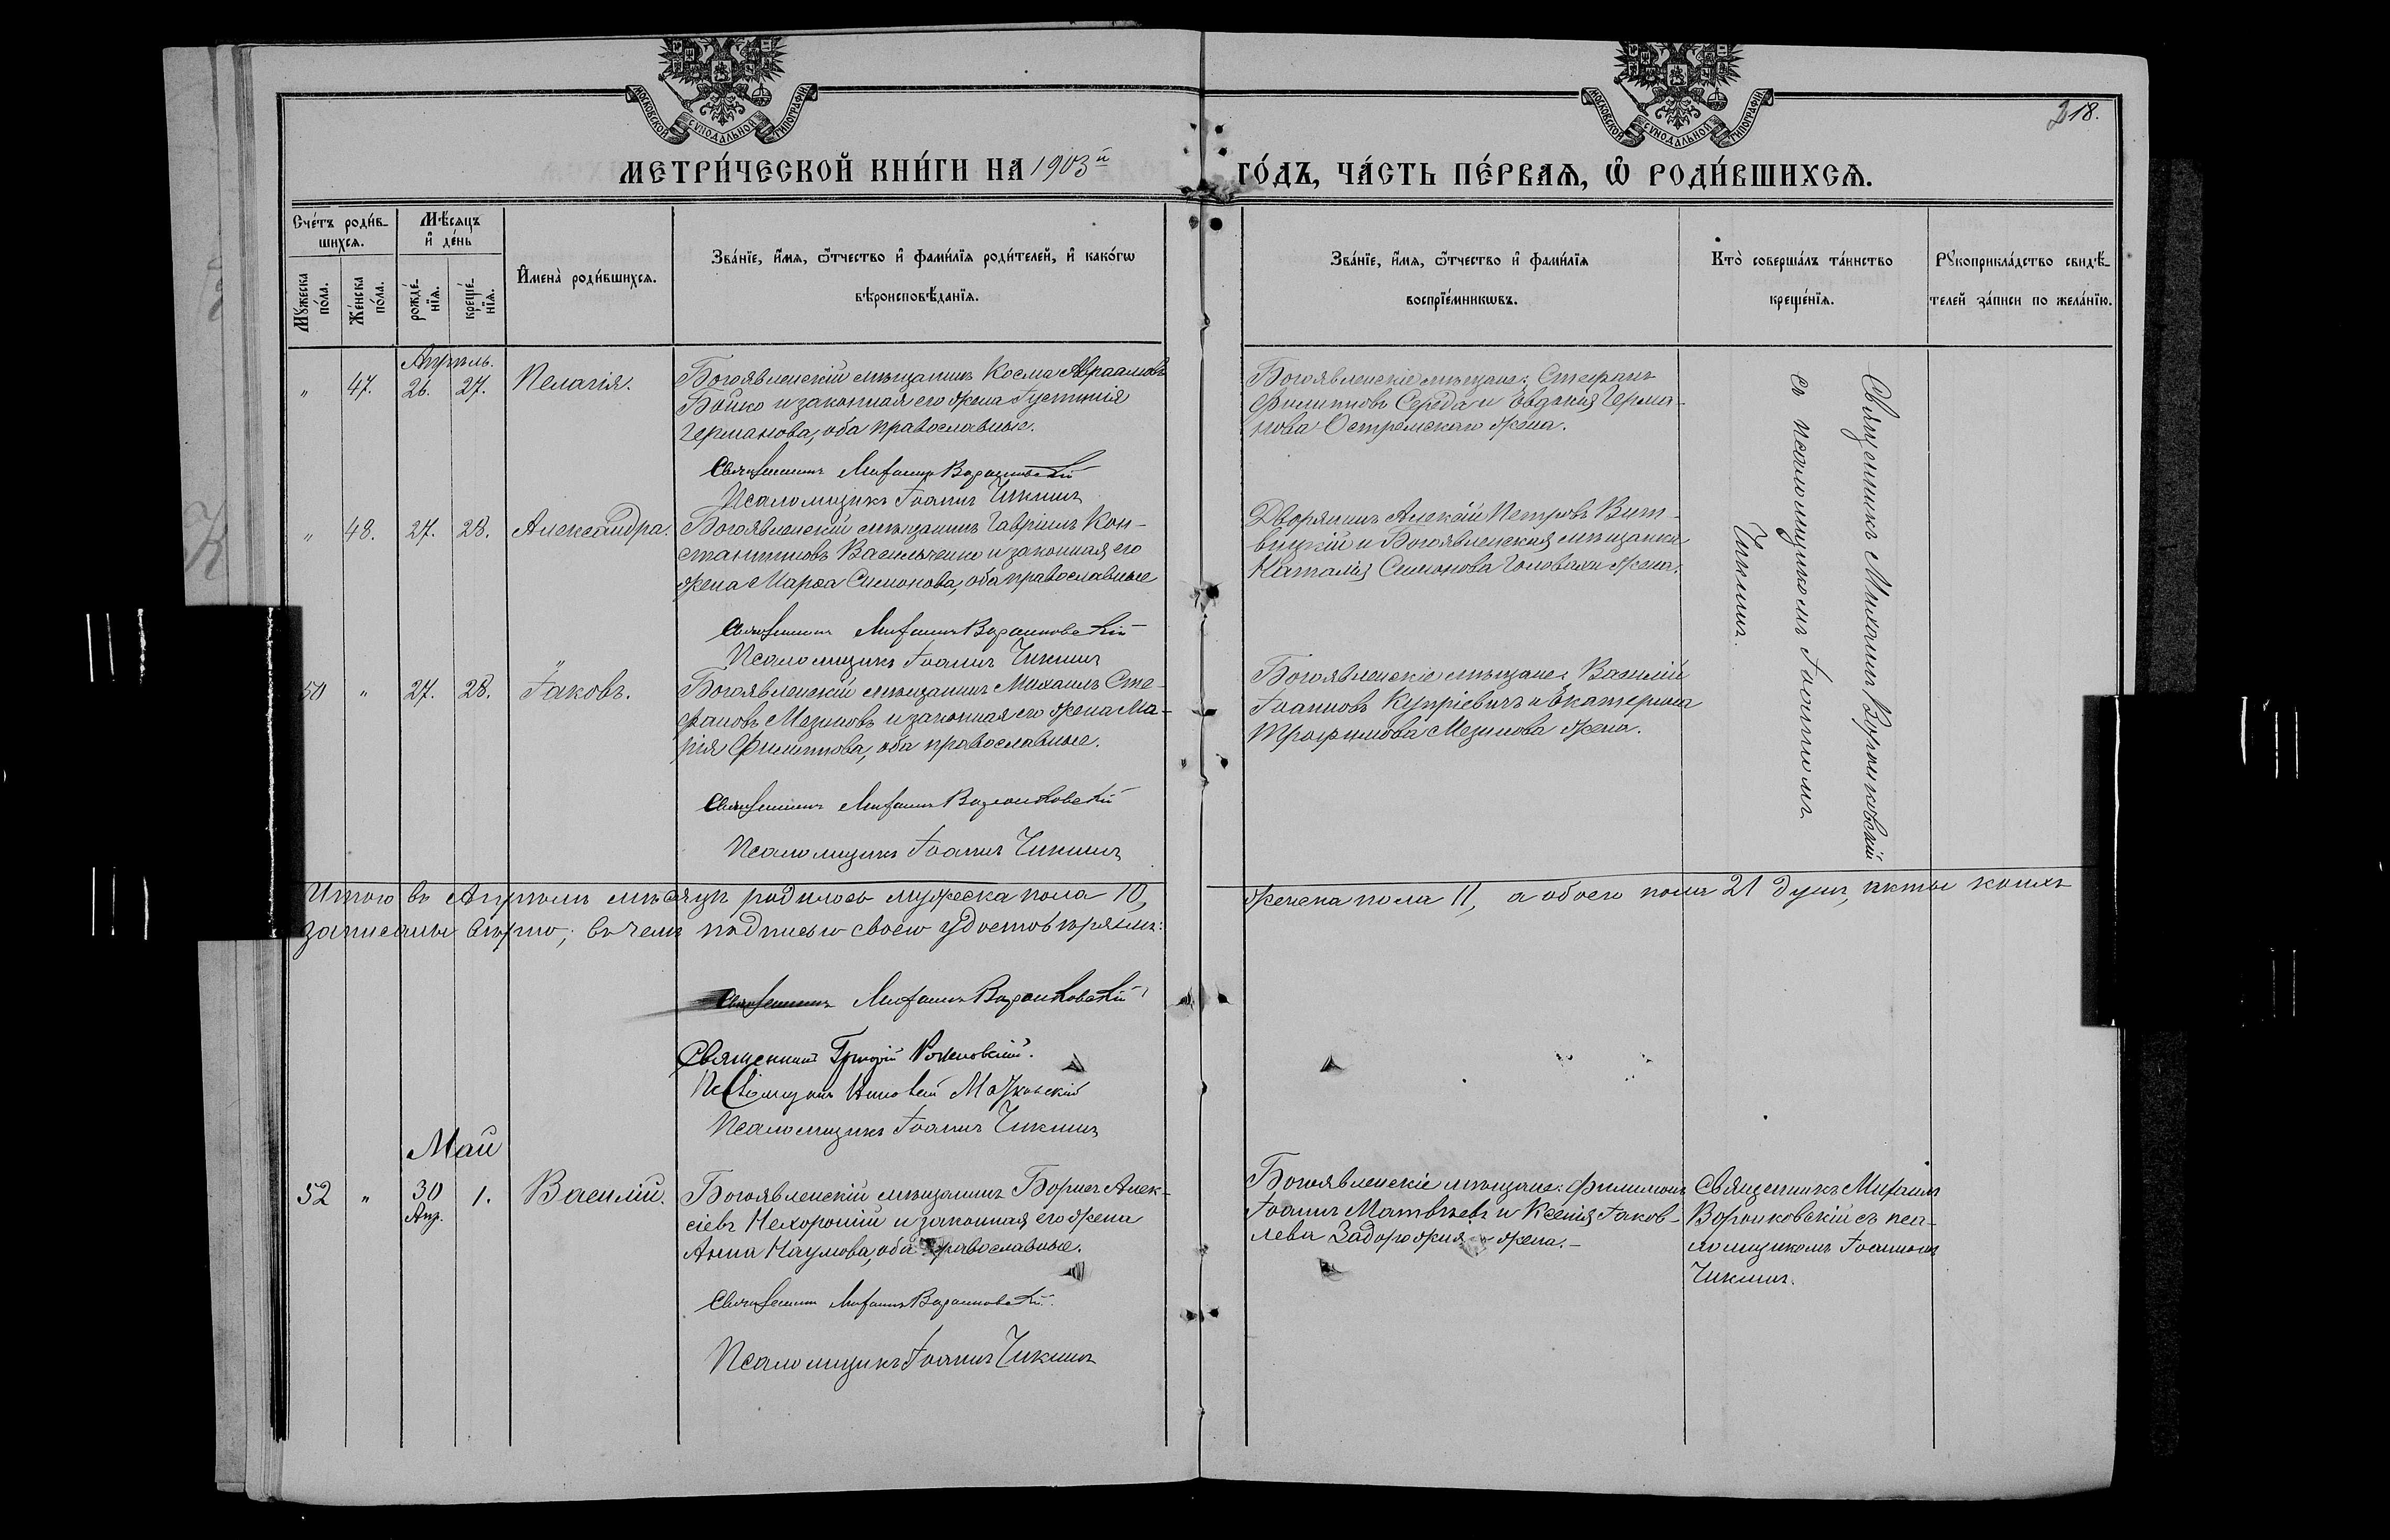 МОСКОВСКОЙ СѴНОДАЛЬНОЙ ТИПОГРАФІИ
МОСКОВСКОЙ СѴНОДАЛЬНОЙ ТИПОГРАФІИ
218.
МЕТРИ́ЧЕСКОЙ КНИ́ГИ НА 1903й ГО́ДЪ, ЧА́СТЬ ПЕ́РВАѦ, Ѡ҆ РОДИ́ВШИХСѦ.
Сче́тъ роди́в-
шихсѧ.
Мѣ́сѧцъ
и҆ де́нь
Мꙋ́жеска
по́ла.
Же́нска
по́ла.
рожде́-
нїѧ.
креще́-
нїѧ.
И҆мена̀ роди́вшихсѧ.
Зва́нїе, и҆́мѧ, ѻ҆́тчество и҆ фами́лїѧ роди́телей, и҆ како́гѡ
вѣроисповѣ́данїѧ.
Зва́нїе, и҆́мѧ, ѻ҆́тчество и҆ фами́лїѧ
воспрїе́мникѡвъ.
Кто̀ соверша́лъ та́инство
креще́нїѧ.
Рꙋкоприкла́дство свидѣ́-
телей за́писи по жела́нїю.
Апрѣль.
" 47. 26. 27. Пелагія.
Богоявленскій мѣщанинъ Косма Авраамовъ
Бойко и законная его жена Іустинія
Германова, оба православные.
Священникъ Михаилъ Воронковскій
Псаломщикъ Іоаннъ Чикшинъ
Богоявленскіе мѣщане: Стефанъ
Филипповъ Середа и Евдокія Герма-
нова Остремскаго жена.
Священникъ Михаилъ Воронковскій
съ псаломщикомъ Іоанномъ
" 48. 27. 28. Александра.
Богоявленскій мѣщанинъ Гавріилъ Кон-
стантиновъ Васильченко и законная его
жена Марѳа Симонова, оба православные
Священникъ Михаилъ Воронковскій
Псаломщикъ Іоаннъ Чикшинъ
Дворянинъ Алексій Петровъ Вит-
вицкій и Богоявленская мѣщанка
Наталія Симонова жена.
50 " 27. 28. Іаковъ.
Богоявленскій мѣщанинъ Михаилъ Сте-
фановъ Мезиновъ и законная его жена Ма-
рія Филиппова, оба православные.
Священникъ Михаилъ Воронковскій
Псаломщикъ Іоаннъ Чикшинъ
Богоявленскіе мѣщане: Василій
Іоанновъ Купріевичъ и Екатерина
Трофимова Мезинова жена.
Итого въ Апрѣлѣ мѣсяцѣ родилось мужеска пола 10, женска пола 11, а обоего пола 21 душъ, акты коихъ
записаны вѣрно; въ чемъ подписью своею удостовѣряемъ:
Священникъ Михаилъ Воронковскій
Священникъ Григорій
Псаломщикъ
Псаломщикъ Іоаннъ Чикшинъ
Май
52 " 30 Апр. 1. Василій.
Богоявленскій мѣщанинъ Борисъ Алек-
сіевъ Нехорошій и законная его жена
Анна Наумова, оба православные.
Священникъ Михаилъ Воронковскій
Псаломщикъ Іоаннъ Чикшинъ
Богоявленскіе мѣщане: Филимонъ
Іоаннъ Матвѣевъ и Ксенія Іаков-
лева Задорожня жена.-
Священникъ Михаилъ
Воронковскій съ пса-
ломщикомъ Іоанномъ